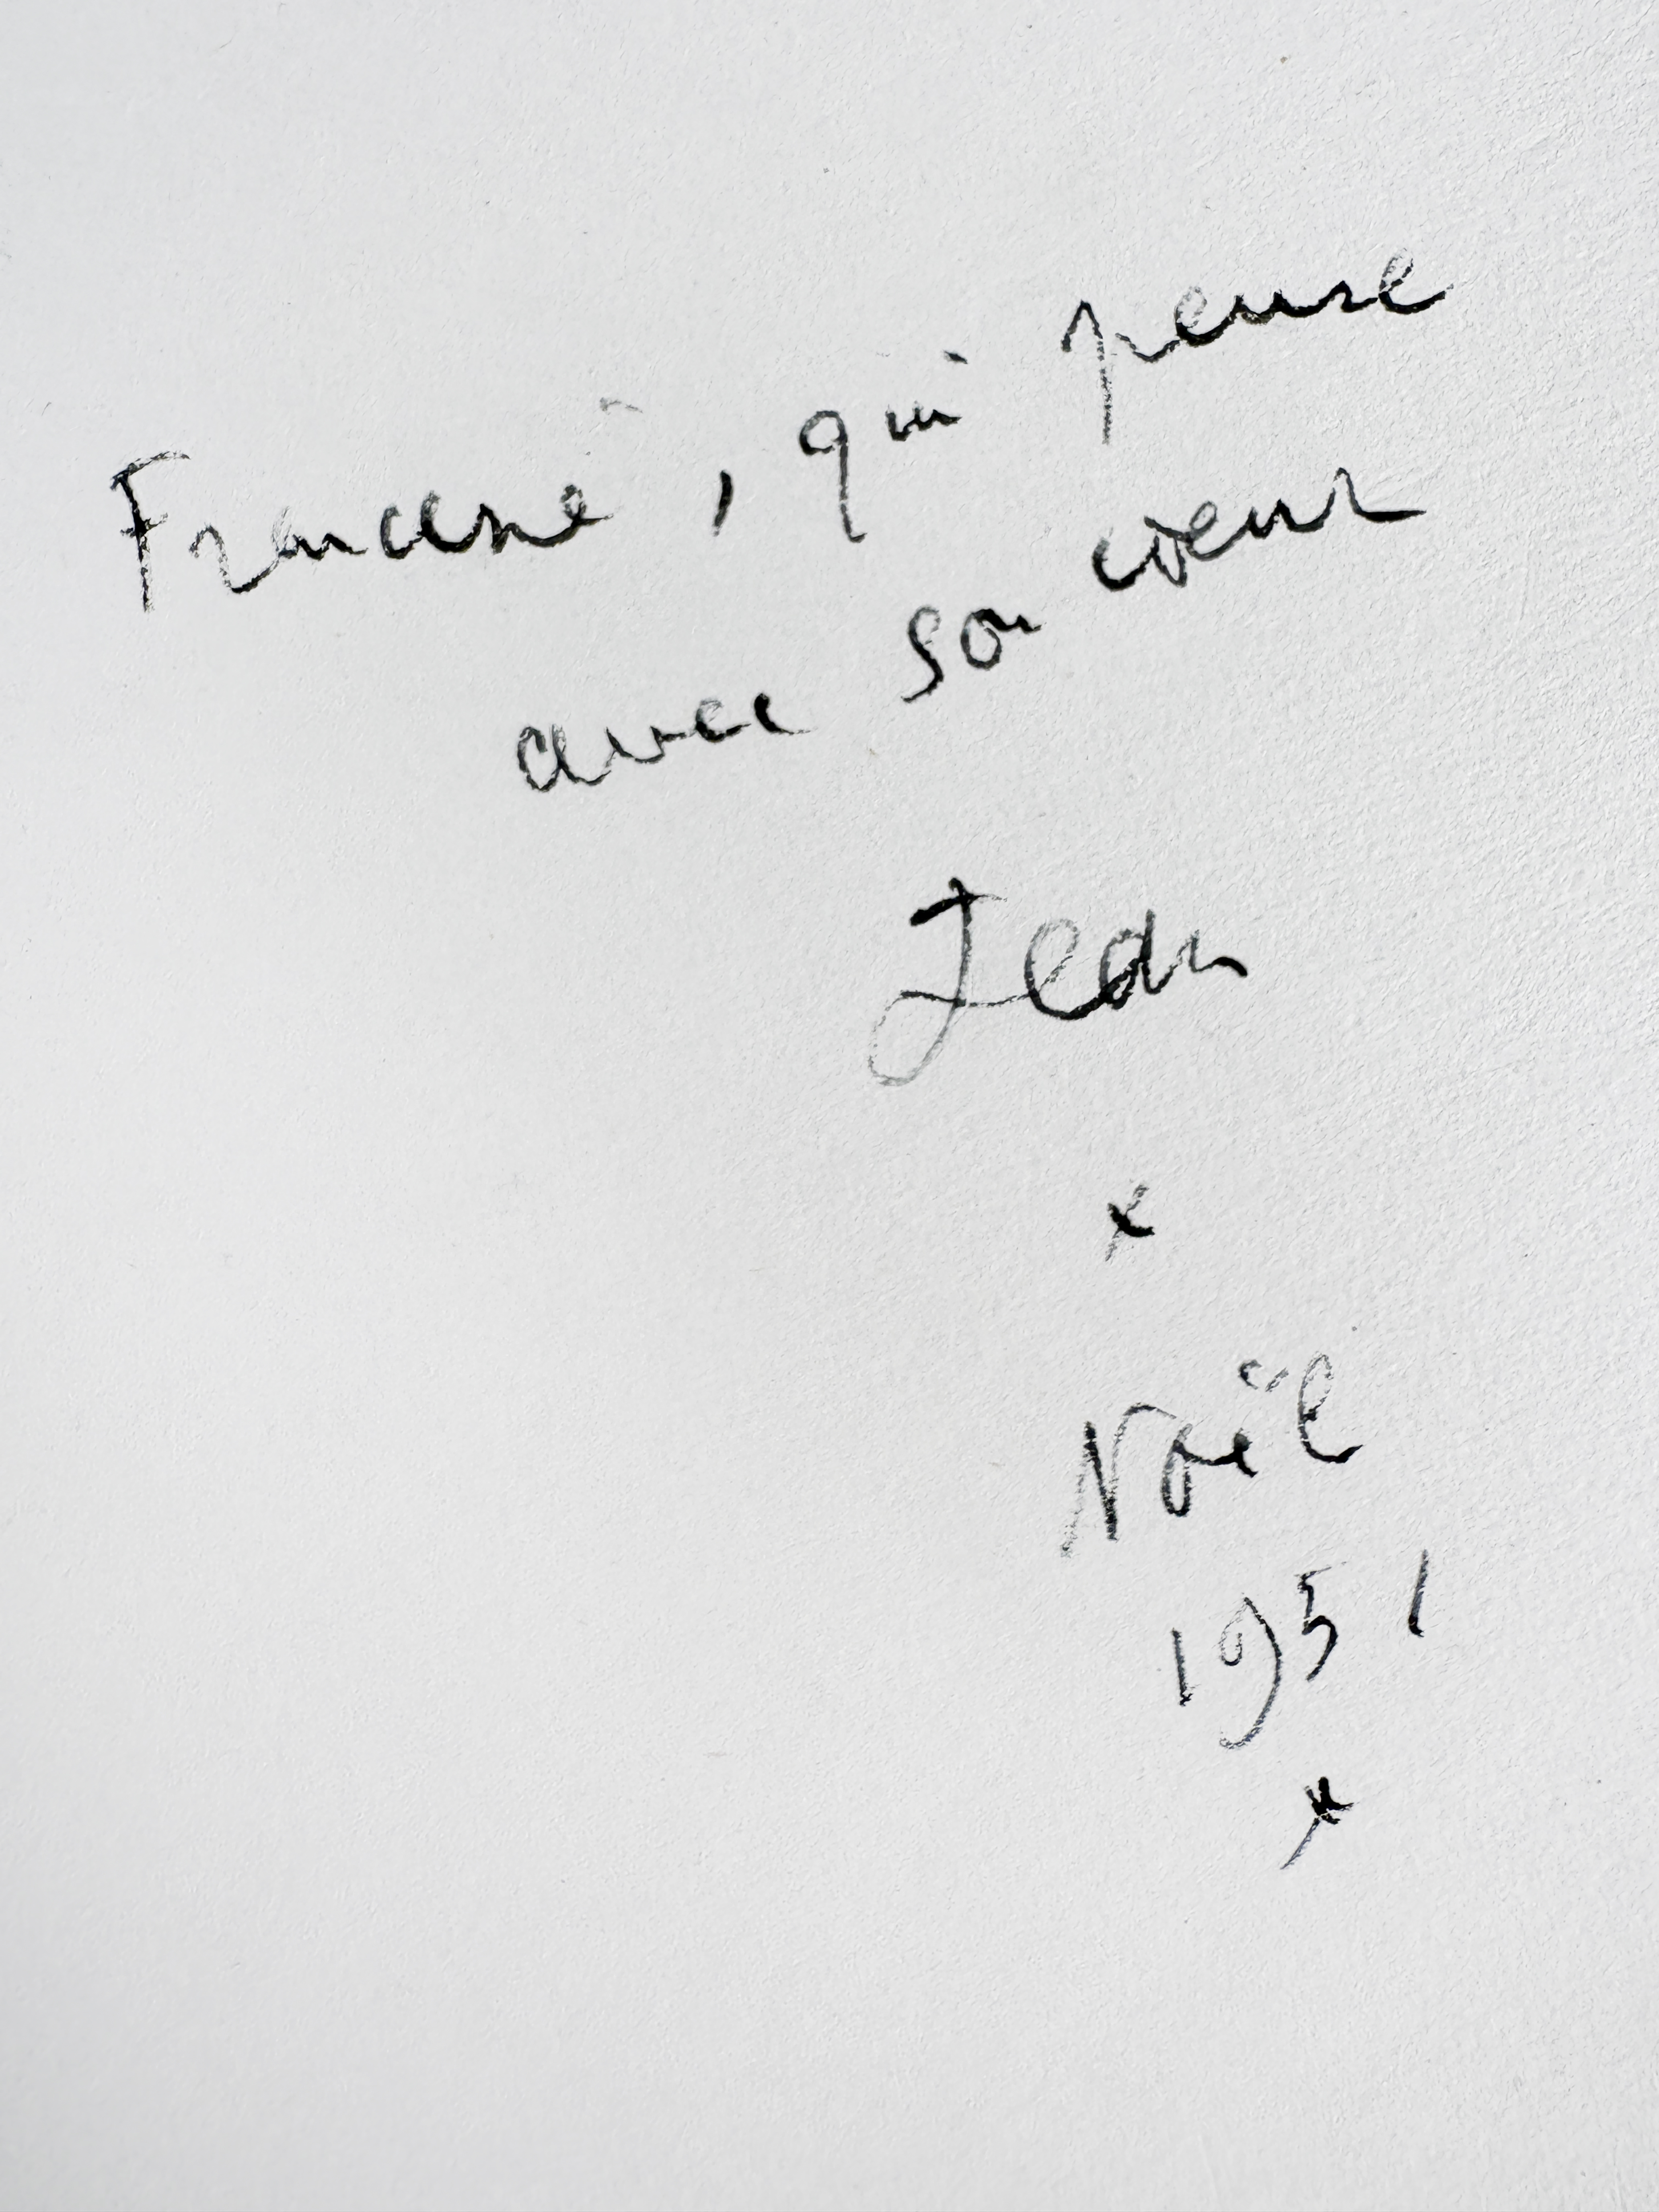 Francine, qui pense
avec son cœur
Jean
*
Noël
1951
*